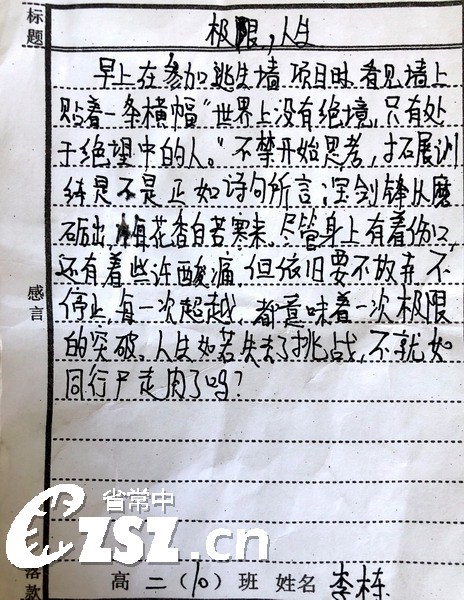 标题
极限,人生
早上在参加逃生墙项目时,看见墙上
贴着一条横幅“世界上没有绝境,只有处
于绝望中的人。”不禁开始思考,拓展训
练是不是正如诗句所言:宝剑锋从磨
砺出,梅花香自苦寒来。尽管身上有着伤口,
还有着些许酸痛,但依旧要不放弃不
停止,每一次起越,都意味着一次极限
的突破。人生如若失去了挑战,不就如
同行尸走肉了吗?
感言
落款
高二(10)班 姓名 李栋
省常中
CZSZ.cn